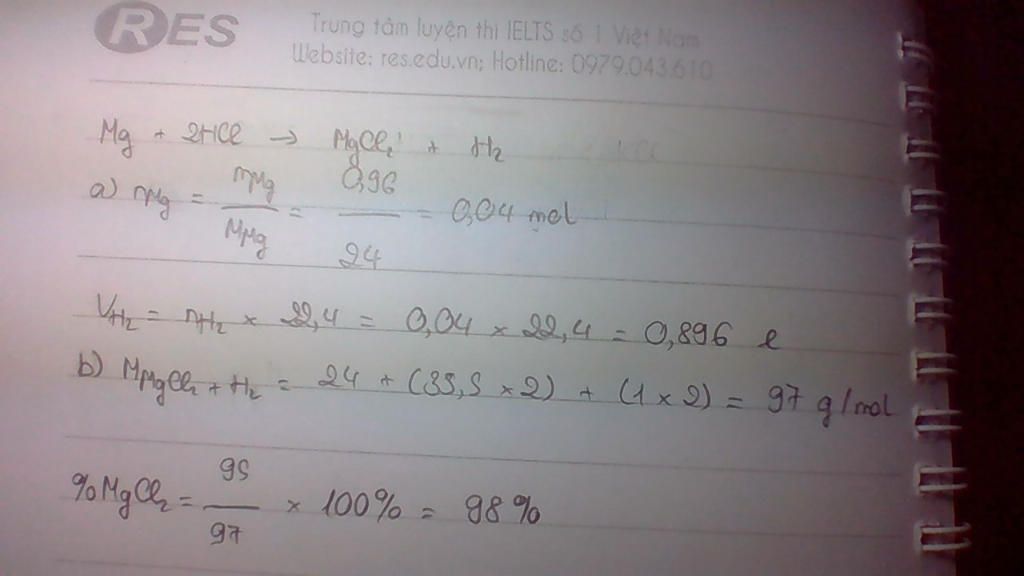 RES
Trung tâm luyện thi IELTS số 1 Việt Nam
Website: res.edu.vn; Hotline: 0979.043.610
Mg + 2HCl → MgCl₂ + H₂
a) nMg = mMg / MMg = 0,96 / 24 = 0,04 mol
VH₂ = nH₂ × 22,4 = 0,04 × 22,4 = 0,896 l
b) MMgCl₂ + H₂ = 24 + (35,5 × 2) + (1 × 2) = 97 g/mol
%MgCl₂ = 95 / 97 × 100% = 98%